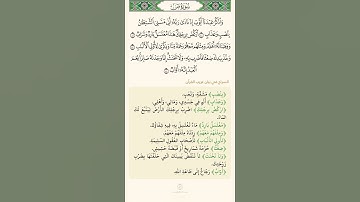 سُورَةُ صٓ
وَٱذْكُرْ عَبْدَنَآ أَيُّوبَ إِذْ نَادَىٰ رَبَّهُۥٓ أَنِّى مَسَّنِىَ ٱلشَّيْطَٰنُ
بِنُصْبٍ وَعَذَابٍ ٱرْكُضْ بِرِجْلِكَ هَٰذَا مُغْتَسَلٌۢ بَارِدٌ وَشَرَابٌ
وَوَهَبْنَا لَهُۥٓ أَهْلَهُۥ وَمِثْلَهُم مَّعَهُمْ رَحْمَةً مِّنَّا وَذِكْرَىٰ لِأُو۟لِى ٱلْأَلْبَٰبِ
وَخُذْ بِيَدِكَ ضِغْثًا فَٱضْرِب بِّهِۦ وَلَا تَحْنَثْ إِنَّا وَجَدْنَٰهُ صَابِرًا نِّعْمَ
ٱلْعَبْدُ إِنَّهُۥٓ أَوَّابٌ
﴿بِنُصْبٍ﴾ بِمَشَقَّةٍ، وَتَعَبٍ.
﴿وَعَذَابٍ﴾ أَلَمٍ فِي جَسَدِي، وَمَالِي، وَأَهْلِي.
﴿ارْكُضْ بِرِجْلِكَ﴾ اضْرِبْ بِرِجْلِكَ الْأَرْضَ يَنْبُعْ لَكَ
الْمَاءُ.
﴿مُغْتَسَلٌ بَارِدٌ﴾ مَاءٌ تَغْتَسِلُ بِهِ؛ فِيهِ شِفَاؤُكَ.
﴿وَمِثْلَهُم مَّعَهُمْ﴾ وَزِدْنَاهُ مِثْلَهُمْ مَعَهُمْ.
﴿لِأُولِي الْأَلْبَابِ﴾ لِأَصْحَابِ الْعُقُولِ السَّلِيمَةِ.
﴿ضِغْثًا﴾ حُزْمَةَ شَمَارِيخَ، أَوْ قَبْضَةَ حَشِيشٍ.
﴿وَلَا تَحْنَثْ﴾ لَا تَنْقُضْ يَمِينَكَ الَّتِي حَلَفْتَهَا بِضَرْبِ
زَوْجَتِكَ.
﴿أَوَّابٌ﴾ رَجَّاعٌ إِلَى طَاعَةِ اللهِ.